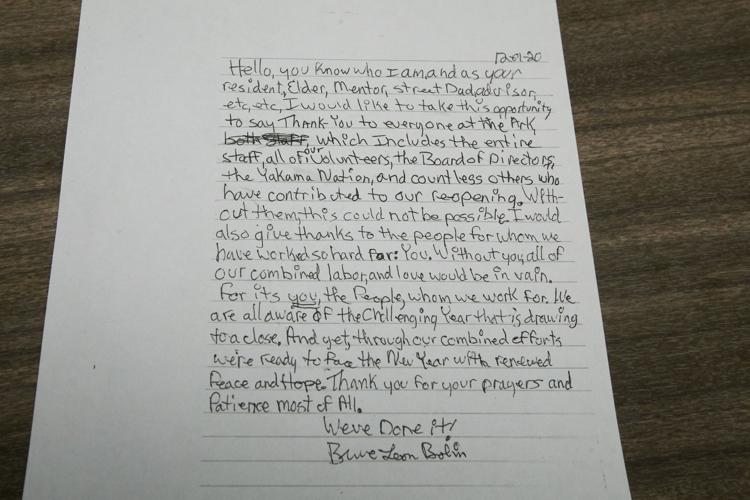 12-01-20
Hello, you know who I am and as your
resident, Elder, Mentor, street Dad, advisor,
etc, etc, I would like to take this opportunity
to say Thank You to everyone at the Ark,
both staff, which Includes the entire
staff, all of our Volunteers, the Board of Directors,
the Yakama Nation, and countless others who
have contributed to our reopening. With-
out them, this could not be possible. I would
also give thanks to the people for whom we
have worked so hard for: You. Without you, all of
our combined labor, and love would be in vain.
For its you, the People, whom we work for. We
are all aware of the Challenging Year that is drawing
to a close. And yet, through our combined efforts
we're ready to face the New Year with renewed
Peace and Hope. Thank you for your prayers and
Patience most of All.
We've Done it!
Leon Bolin